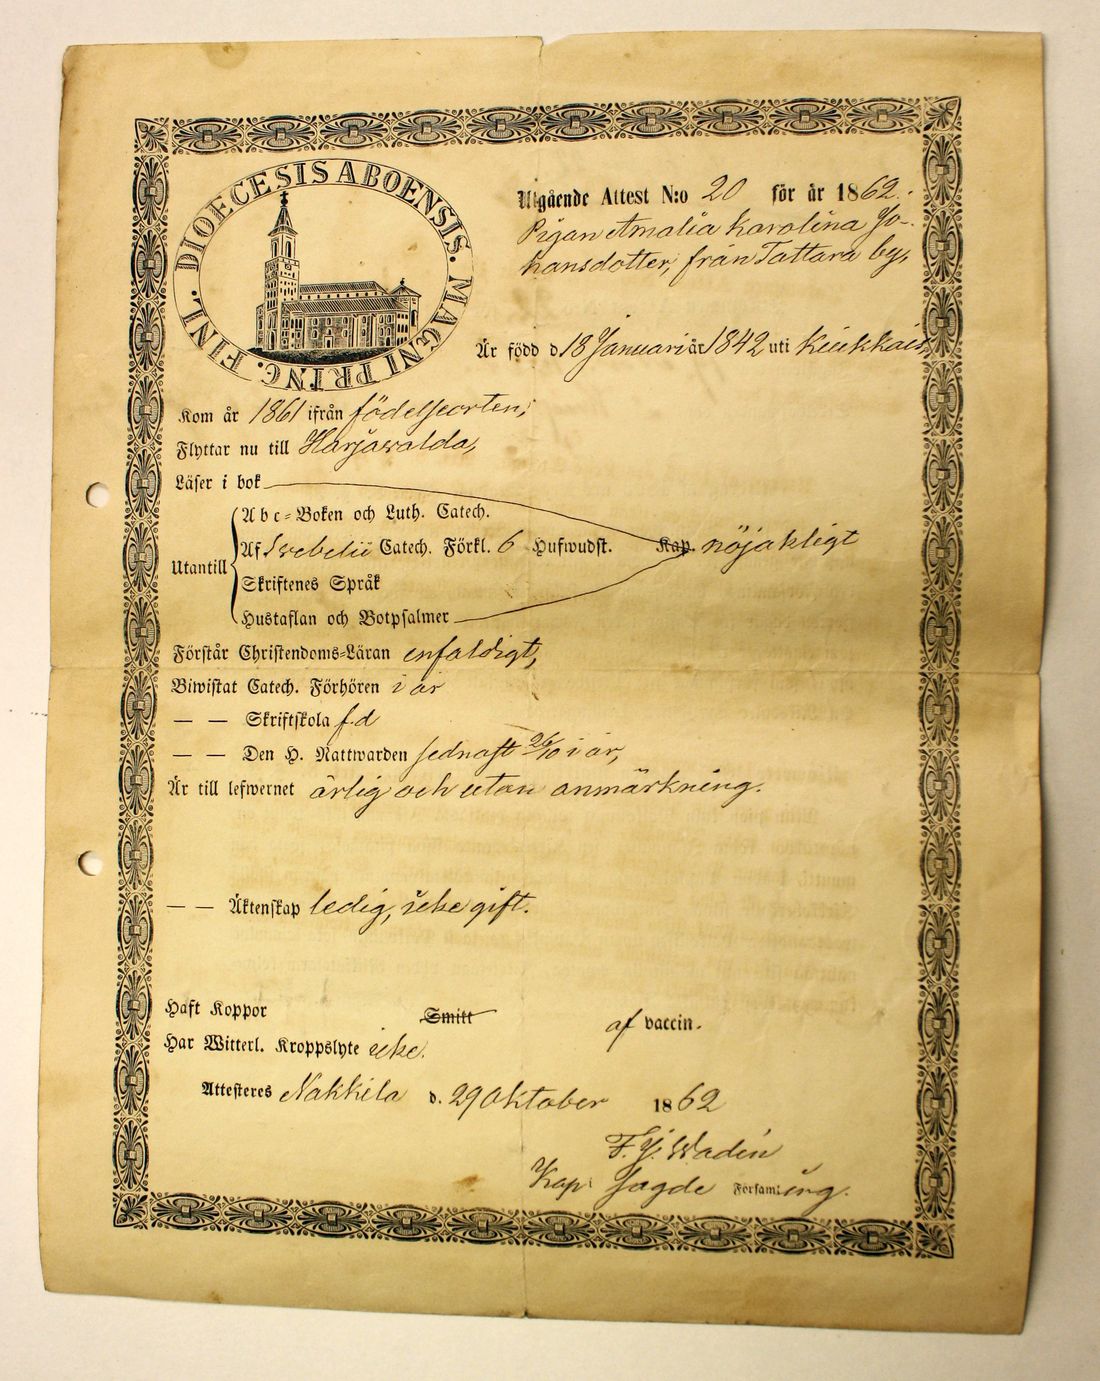 DIOECESIS ABOENSIS. MAGNI PRINC. FINL.
Utgående Attest N:o 20 för år 1862.
Pigan Amalia Karolina Jo-
hansdotter, från Tattara by,
Är född d 18 Januari år 1842 uti Kiukkais,
Kom år 1861 ifrån födelseorten,
Flyttar nu till Harjavalda,
Läser i bok
Abc-Boken och Luth. Catech.
Utantill Af Svebelii Catech. Förkl. 6 Hufwudst. Kap. nöjakligt
Skriftenes Språk
Hustaflan och Botpsalmer
Förstår Christendoms-Läran enfaldigt,
Biwistat Catech. Förhören i år
— — Skriftskola f.d
— — Den H. Nattwarden sednast 26/10 i år,
Är till lefwernet ärlig och utan anmärkning.
— — Äktenskap ledig, icke gift.
Haft Koppor Smitt af vaccin.
Har Witterl. Kroppslyte icke.
Attesteres Nakkila d. 29 Oktober 1862
F. J. Wadén
Kap: Sagde Församling.